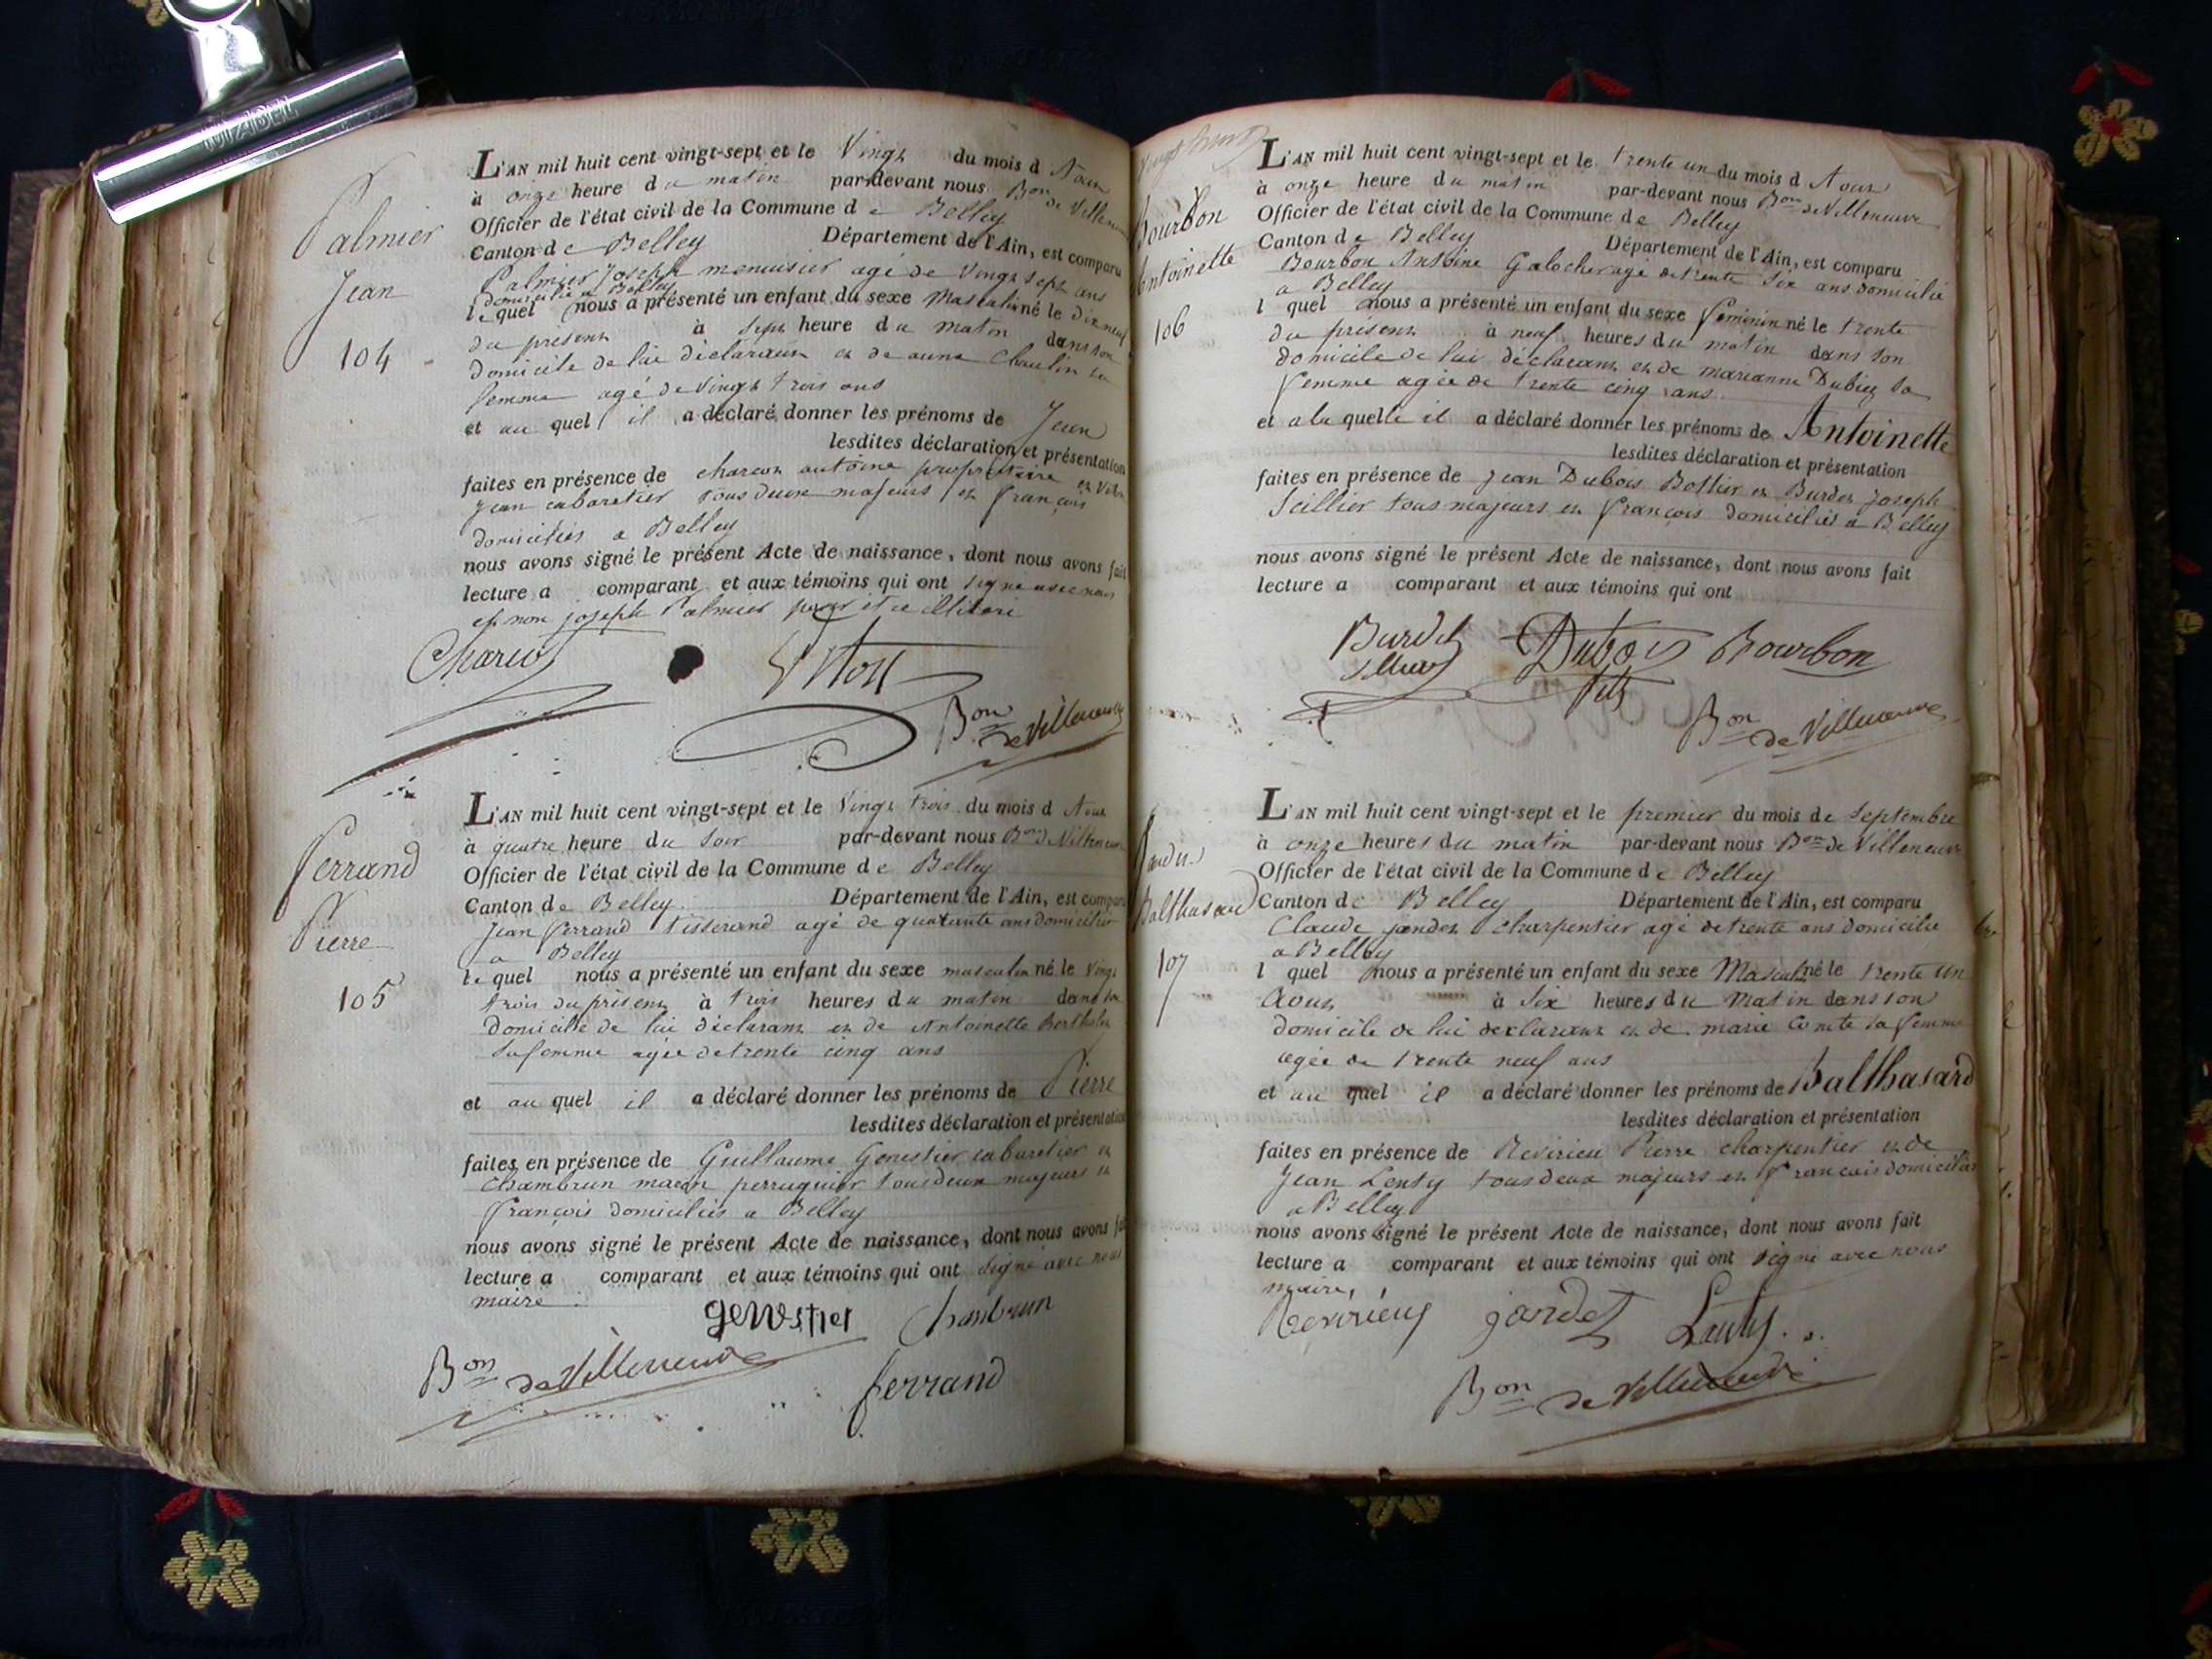 Palmier
Jean
104
L'AN mil huit cent vingt-sept et le Vingt du mois d Aout
à onze heure du matin par-devant nous Bon de Villeneuve
Officier de l'état civil de la Commune de Belley
Canton de Belley Département de l'Ain, est comparu
Palmier Joseph menuisier agé de Vingt sept ans
domicilié a Belley
lequel nous a présenté un enfant du sexe Masculin né le dix neuf
du present à sept heure du matin dans son
domicile de lui déclarant et de anne sa
femme agé de Vingt trois ans
et au quel il a déclaré donner les prénoms de Jean
lesdites déclaration et présentation
faites en présence de antoine propriétaire et
Jean cabaretier tous deux majeurs et français
domiciliés a Belley
nous avons signé le présent Acte de naissance, dont nous avons fait
lecture a comparant et aux témoins qui ont signé avec nous
et non joseph Palmier pour etre
Bon de Villeneuve
Ferrand
Pierre
105
L'AN mil huit cent vingt-sept et le Vingt trois du mois d Aout
à quatre heure du Soir par-devant nous Bon de Villeneuve
Officier de l'état civil de la Commune de Belley
Canton de Belley Département de l'Ain, est comparu
Jean Ferrand tisserand agé de quarante ans domicilié
a Belley
lequel nous a présenté un enfant du sexe masculin né le Vingt
trois du présent à trois heures du matin dans son
domicile de lui déclarant et de Antoinette
sa femme agée de trente cinq ans
et au quel il a déclaré donner les prénoms de Pierre
lesdites déclaration et présentation
faites en présence de Guillaume Genestier cabaretier et
Chambrun perruquier tous deux majeurs et
françois domiciliés a Belley
nous avons signé le présent Acte de naissance, dont nous avons fait
lecture a comparant et aux témoins qui ont signé avec nous
maire
genestier Chambrun
Bon de Villeneuve
ferrand
Bourbon
Antoinette
106
L'AN mil huit cent vingt-sept et le trente un du mois d Aout
à onze heure du matin par-devant nous Bon de Villeneuve
Officier de l'état civil de la Commune de Belley
Canton de Belley Département de l'Ain, est comparu
Bourbon Antoine Galocher agé de trente six ans domicilié
a Belley
l quel nous a présenté un enfant du sexe féminin né le trente
du présent à neuf heures du matin dans son
domicile de lui déclarant et de marianne sa
femme agée de trente cinq ans
et a la quelle il a déclaré donner les prénoms de Antoinette
lesdites déclaration et présentation
faites en présence de Jean Dubois Bottier et Burdet Joseph
Sellier tous majeurs et françois domiciliés a Belley
nous avons signé le présent Acte de naissance, dont nous avons fait
lecture a comparant et aux témoins qui ont
Burdet Dubois Bourbon
fils
Bon de Villeneuve
Balthasard
107
L'AN mil huit cent vingt-sept et le premier du mois de Septembre
à onze heures du matin par-devant nous Bon de Villeneuve
Officier de l'état civil de la Commune de Belley
Canton de Belley Département de l'Ain, est comparu
Claude charpentier agé de trente ans domicilié
a Belley
l quel nous a présenté un enfant du sexe Mascul né le trente un
aout à Six heures du Matin dans son
domicile de lui declarant et de marie Comte sa femme
agée de trente neuf ans
et au quel il a déclaré donner les prénoms de Balthasard
lesdites déclaration et présentation
faites en présence de Revirieu Pierre charpentier et de
Jean Lenty tous deux majeurs et français domiciliés
a Belley
nous avons signé le présent Acte de naissance, dont nous avons fait
lecture a comparant et aux témoins qui ont signé avec nous
maire,
jardet Lenty
Bon de Villeneuve